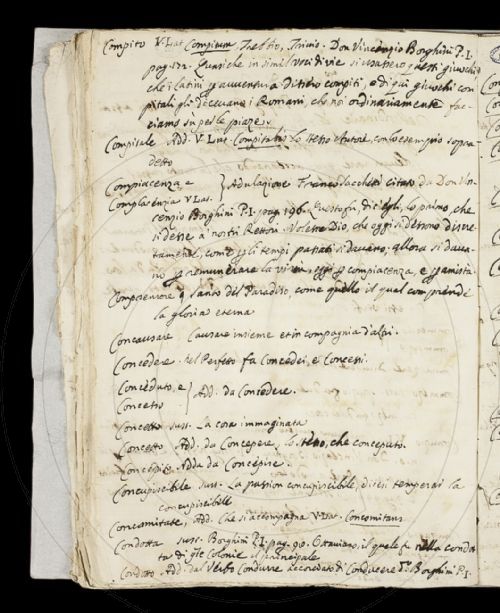 Compito V. Lat. Compitum Trebbio, Trivio. Don Vincenzio Borghini P. I.
pag. 172. Quasi che in simili voci di vie si usassero questi giuochi
che i latini
pitali gli dicevano i Romani, che noi ordinariamente fac-
ciamo su per le piazze.
Compitale Add. V. Lat. Compitalis Lo stesso Autore, coll'esempio sopra-
detto
Compiacenza e
Complacenzia V. Lat. } Adulazione Franco Sacchetti citato da Don Vin-
cenzio Borghini P. I. pag. 196. Questo fu, dic'egli, lo primo, che
si desse a' nostri Rettori. Volesse Dio, che oggi si dessono diret-
tamente, come per gli tempi passati si davano; allora si dava-
no per remunerare la virtù, oggi per compiacenza, e per amistà
Comprensore q. Santo del Paradiso, come quello il qual comprende
la gloria eterna
Concausare Causare insieme et in compagnia d'altri.
Concedere. Nel Perfetto fa Concedei, e Concessi.
Conceduto, e
Concesso } Add. da Concedere.
Concetto sust. La cosa immaginata
Concetto Add. da Concepere, lo stesso, che conceputo.
Concepito Add. da Concepire.
Concupiscibile sust. La passion concupiscibile, dicesi temperar la
concupiscibile
Concomitante, Add. Che si accompagna V. Lat. Concomitans
Condotta sust. Borghini P. I. pag. 90. Ottaviano, il quale fu nella condot-
ta di q.te Colonie il principale
Condotto Add. dal Verbo Condurre Borghini P. I.